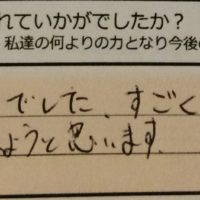 れていかがでしたか？
私達の何よりの力となり今後の
でした、すごく
ようと思います。